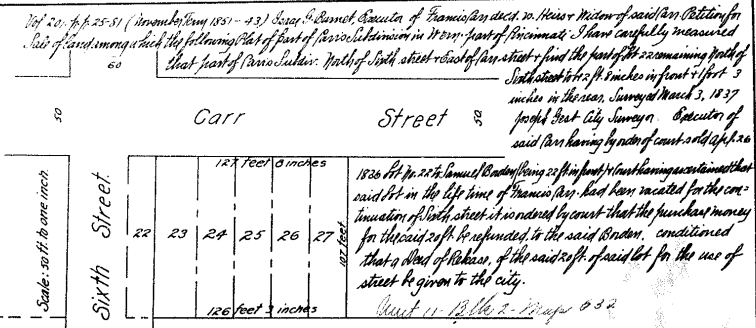 Vol 20, p.p. 25-81 (November Term 1851 - 43) Isaac G. Burnet, Executor of Francis Carr decd. vs. Heirs & Widow of said Carr. Petition for
Sale of land among which the following Plat of Part of Carr's Subdivision in West. part of Cincinnati. I have carefully measured
that part of Carr's Subdiv. North of Sixth street & East of Carr street & find the part of lot 22 remaining North of
Sixth street to be 2 ft. 8 inches in front & 1 foot 3
inches in the rear. Surveyed March 3, 1837
Joseph Gest City Surveyor. Executor of
said Carr having by order of court sold Apl. 26
1836 Lot No. 22 to Samuel Borden (being 22 ft in front) & Court having ascertained that
said lot in the life time of Francis Carr. had been vacated for the con-
tinuation of Sixth street it is ordered by court that the purchase money
for the said 20 ft. be refunded. to the said Borden. conditioned
that a Deed of Release, of the said 20 ft. of said lot for the use of
street be given to the city.
60
50
Carr Street
50
127 feet 8 inches
Scale: 50 ft. to one inch.
Sixth Street.
22 23 24 25 26 27
107 feet
126 feet 3 inches
11 - Blk 2 - Map 632